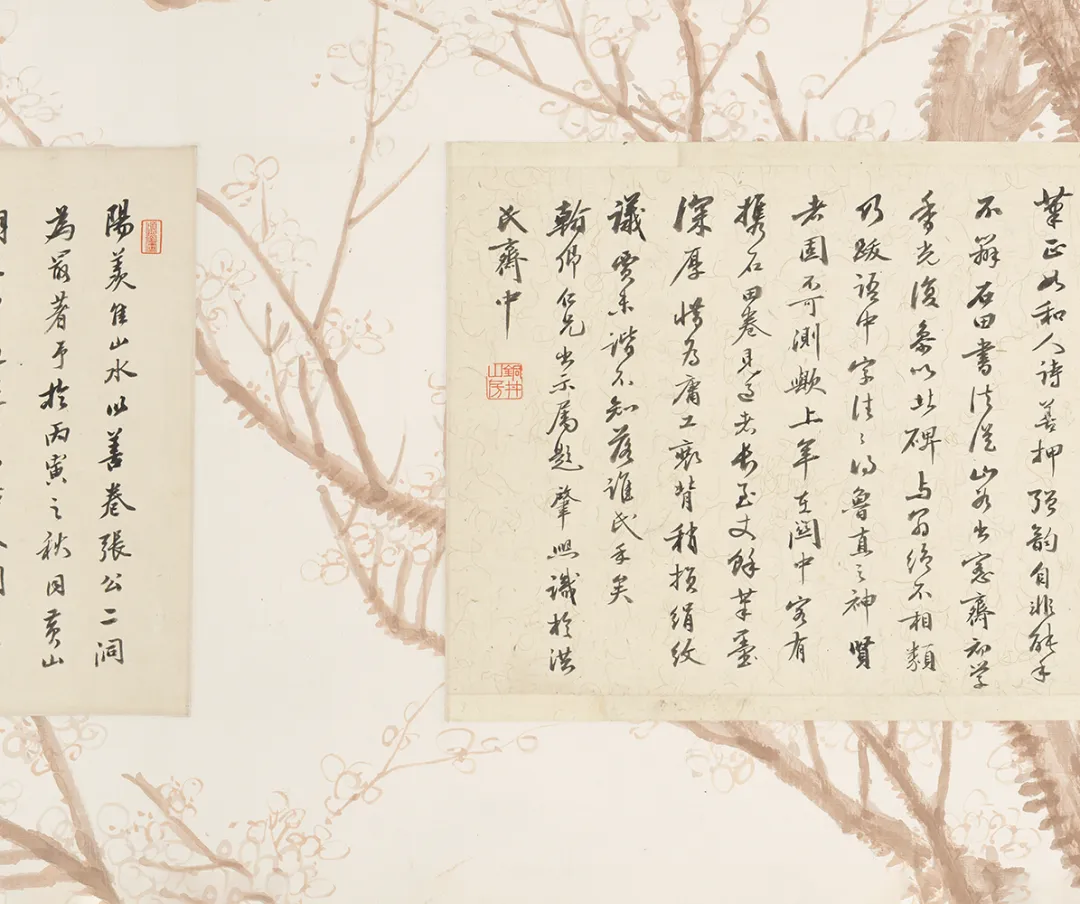 葉正如和人詩善押强韵自非能手
不辨石田書法從山谷出窓齋初學
香光復參以北碑与翁絕不相類
乃跋語中字法之得魯直之神賢
者固不可測歟上年在關中客有
携石田卷見過者長至丈餘筆墨
深厚惜為庸工裝背稍損絹紋
議賈未諧不知落誰氏手矣
翰卿仁兄出示属題肇煦識於洪
氏齋中
銅井山房
陽羨佳山水以善卷張公二洞
為最著予於丙寅之秋同黄山